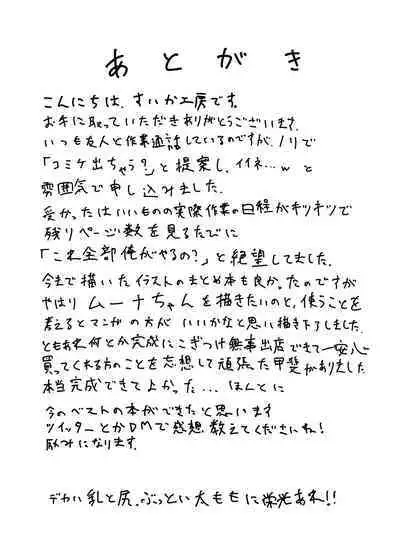 あとがき
こんにちは、すいか工房です。
お手に取っていただきありがとうございます。
いつも友人と作業通話しているのですが、ノリで
「コミケ出ちゃう?」と提案し、イイネ…w と
雰囲気で申し込みました。
受かったはいいものの実際作業の日程がキツキツで
残りページ数を見るたびに
「これ全部俺がやるの?」と絶望してました。
今まで描いたイラストのまとめ本も良かったのですが
やはりムーナちゃんを描きたいのと、使うことを
考えるとマンガの方がいいかなと思い描き下ろしました。
ともあれ何とか完成にこぎつけ無事出店できて一安心
買ってくれる方のことを妄想して頑張た甲斐がありました
本当完成できてよかった... ほんとに
今のベストの本ができたと思います
ツイッターとかDMで感想教えてくださいね!
励みになります。
デカい乳と尻、ぶっとい太ももに栄光あれ!!